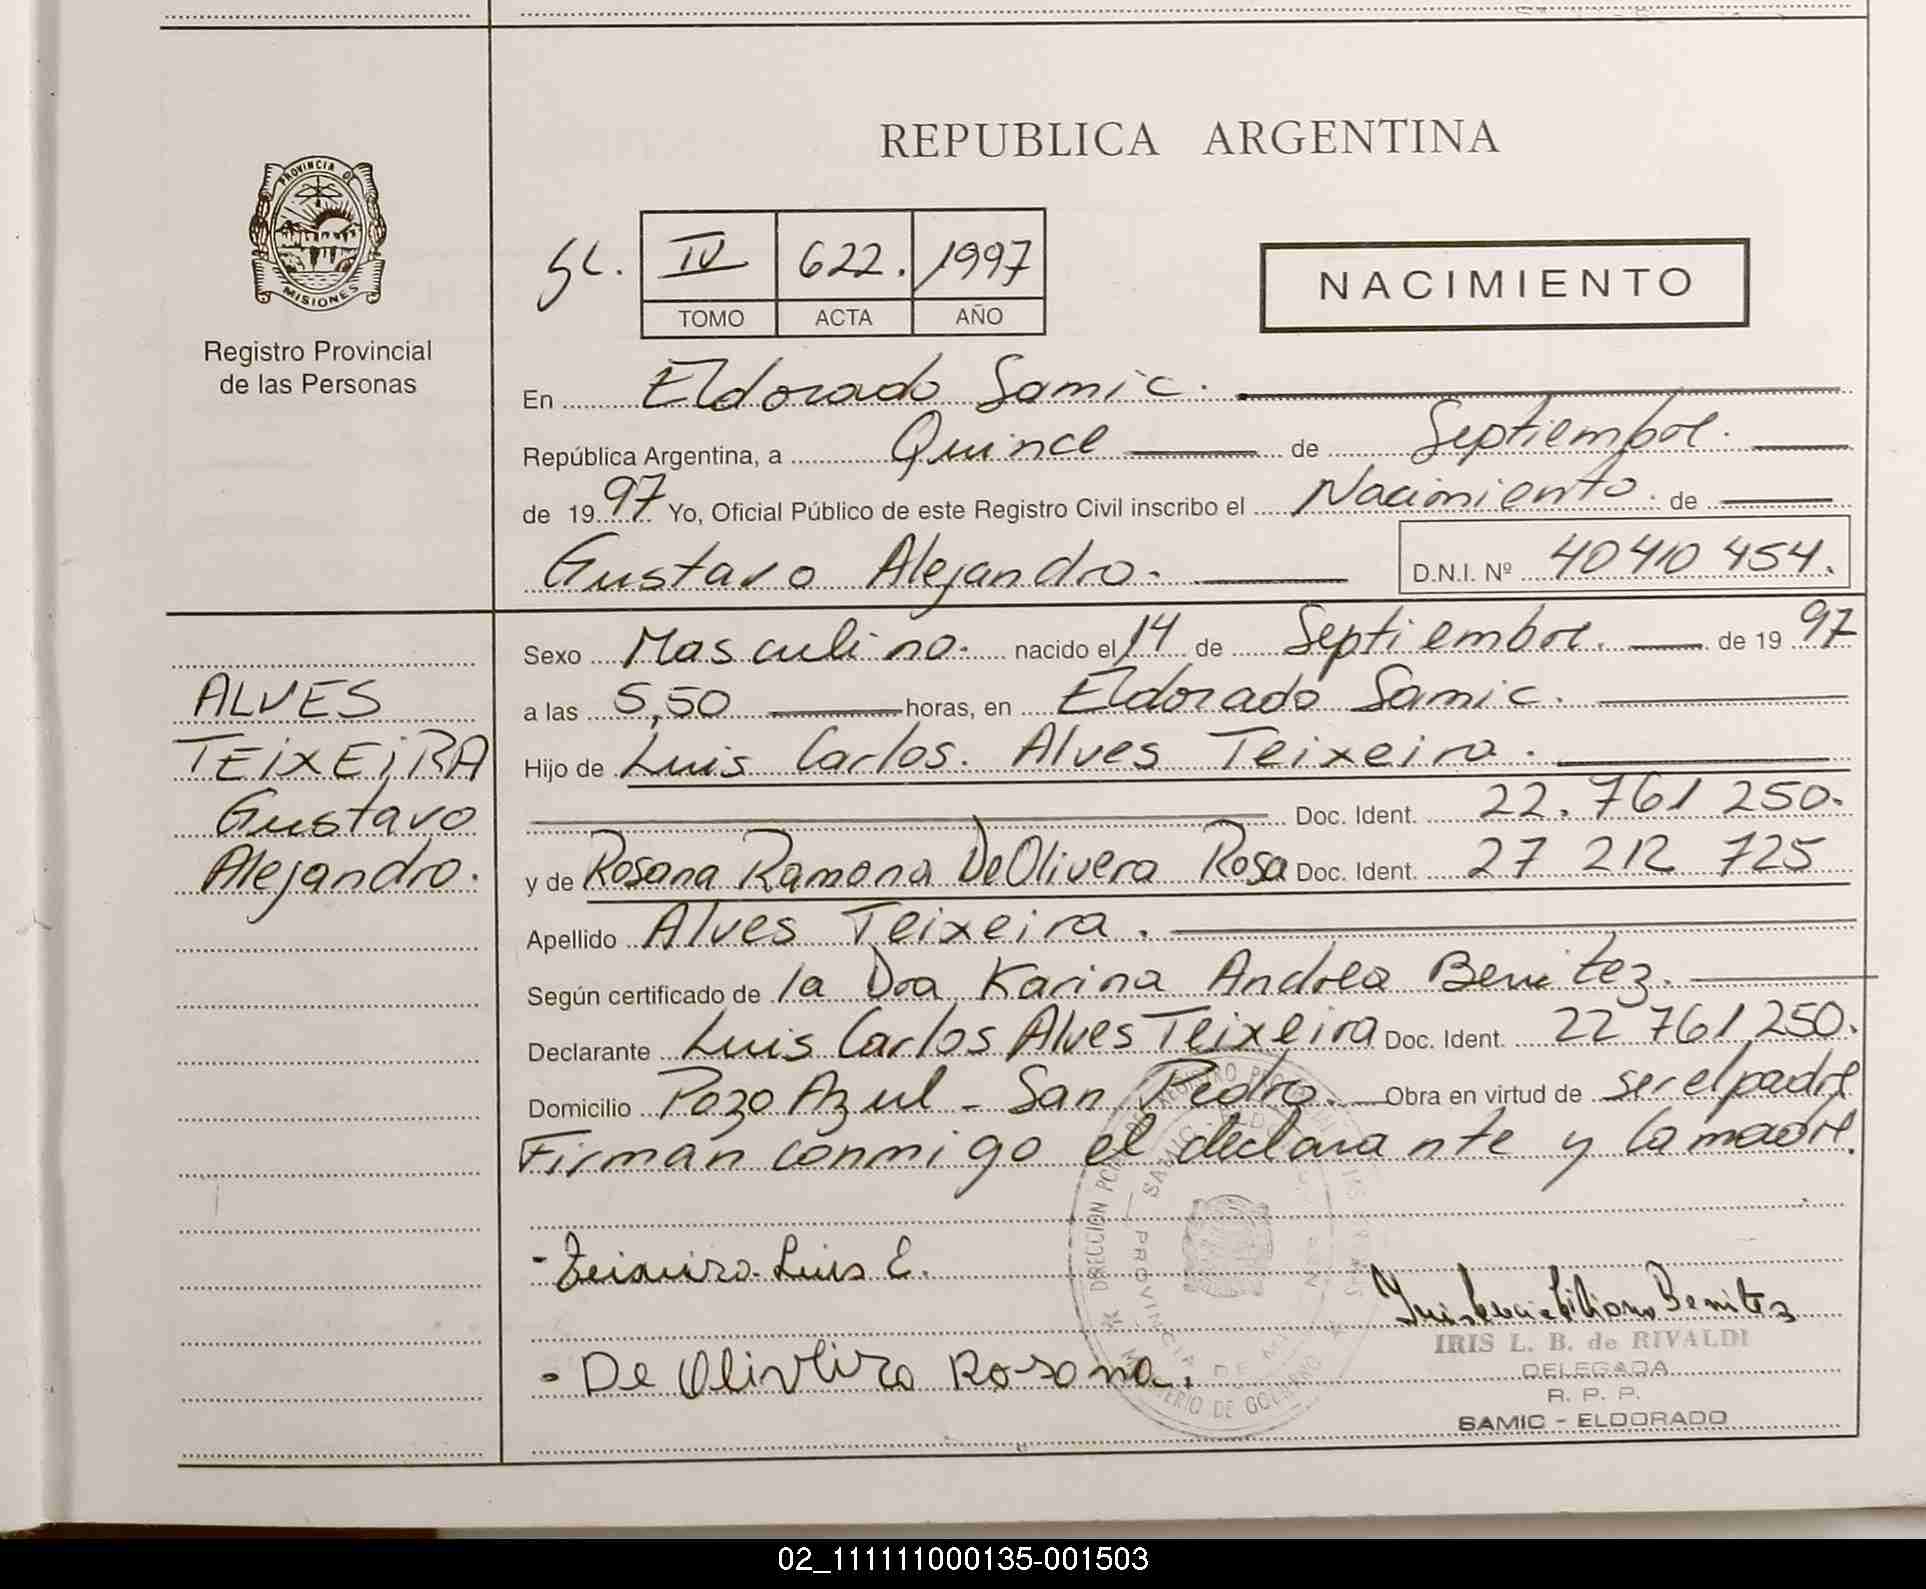 REPUBLICA ARGENTINA
PROVINCIA DE
MISIONES
Registro Provincial
de las Personas
IV 622. 1997
TOMO ACTA AÑO
NACIMIENTO
En Eldorado Samic.
República Argentina, a Quince de Septiembre.
de 1997 Yo, Oficial Público de este Registro Civil inscribo el Nacimiento. de
Gustavo Alejandro. D.N.I. Nº 40410 454.
ALVES
TEIXEIRA
Gustavo
Alejandro.
Sexo Masculino. nacido el 14 de Septiembre. de 1997
a las 5,50 horas, en Eldorado Samic.
Hijo de Luis Carlos. Alves Teixeira.
Doc. Ident. 22.761 250.
y de Rosana Ramona DeOlivera Rosa Doc. Ident. 27 212 725
Apellido Alves Teixeira.
Según certificado de la Dra Karina Andrea Benitez.
Declarante Luis Carlos Alves Teixeira Doc. Ident. 22 761 250.
Domicilio Pozo Azul - San Pedro. Obra en virtud de ser el padre
Firman conmigo el declarante y la madre.
Luis
Benitez
IRIS L. B. de RIVALDI
DELEGADA
R. P. P.
SAMIC - ELDORADO
- De Oliveira Rosana.
02_111111000135-001503